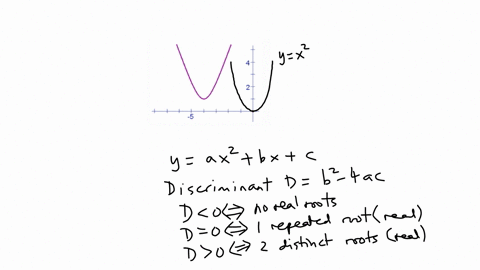 y = x²
4
2
-5
y = ax² + bx + c
Discriminant D = b² - 4ac
D < 0 ⇔ no real roots
D = 0 ⇔ 1 repeated root (real)
D > 0 ⇔ 2 distinct roots (real)